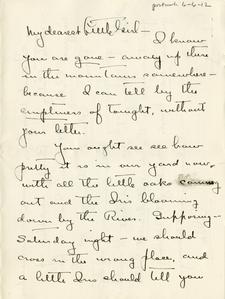 postmark 6-6-12
My dearest Little Girl —
I know
you are gone — away up there
in the mountains somewhere —
because I can tell by the
emptiness of tonight, without
your letter.
You ought see see how
pretty it is in our yard now.
with all the little oaks coming
out and the Iris blooming
down by the River. Supposing —
Saturday night — we should
cross in the wrong place, and
a little Iris should tell you